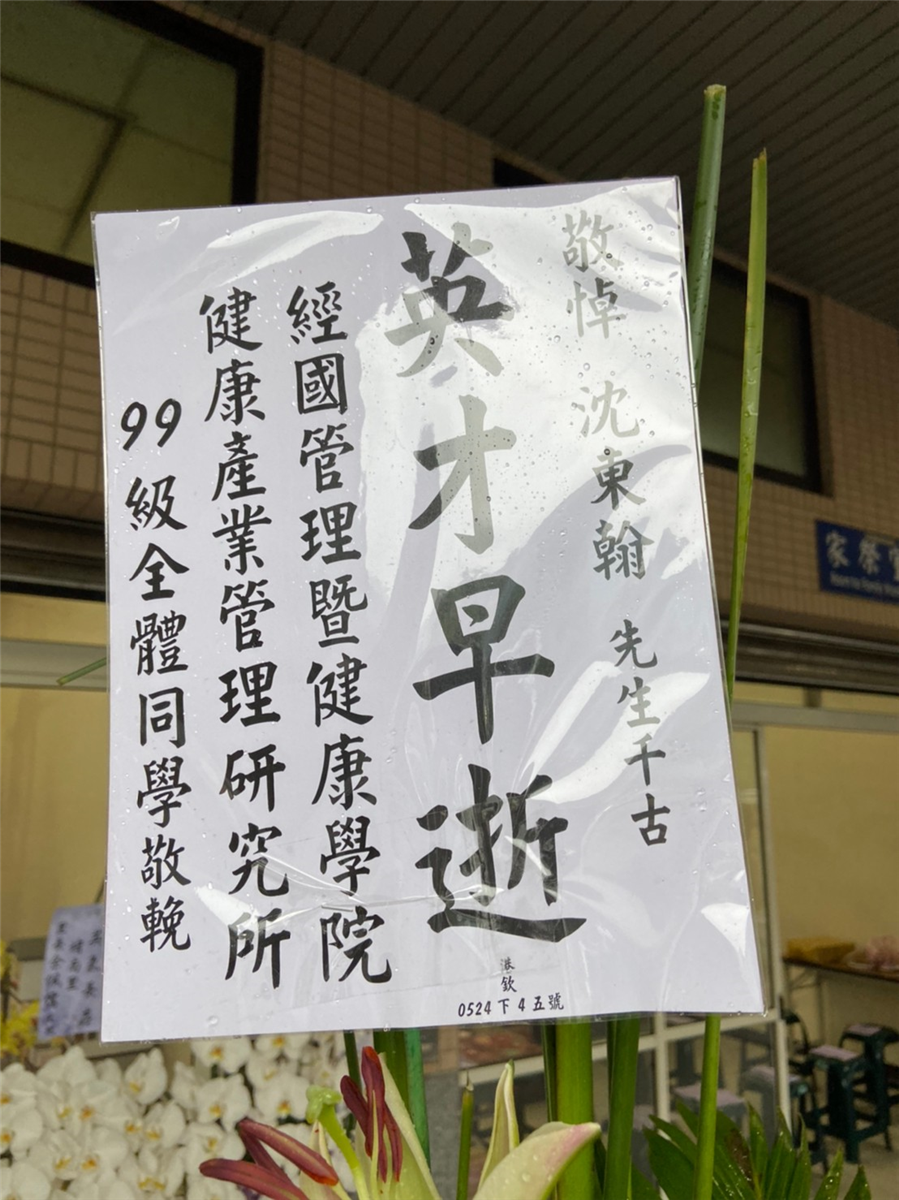 敬悼 沈東翰 先生千古
英才早逝
經國管理暨健康學院
健康產業管理研究所
99級全體同學敬輓
港欽
0524下4五號
家祭